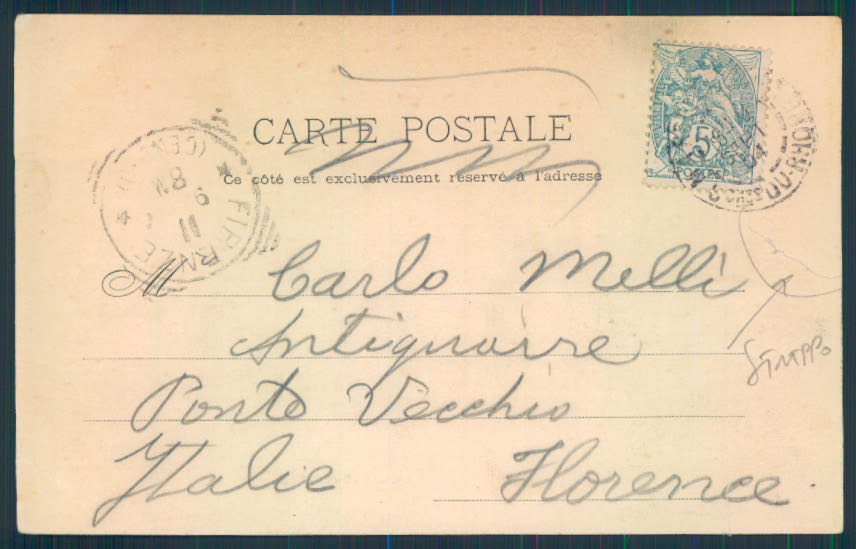 CARTE POSTALE
Ce côté est exclusivement réservé à l'adresse
5
POSTES
FIRENZE
(CENTRO)
11
9
8M
M Carlo Melli
Antiquaire
Ponte Vecchio
Italie Florence
STRAPPO